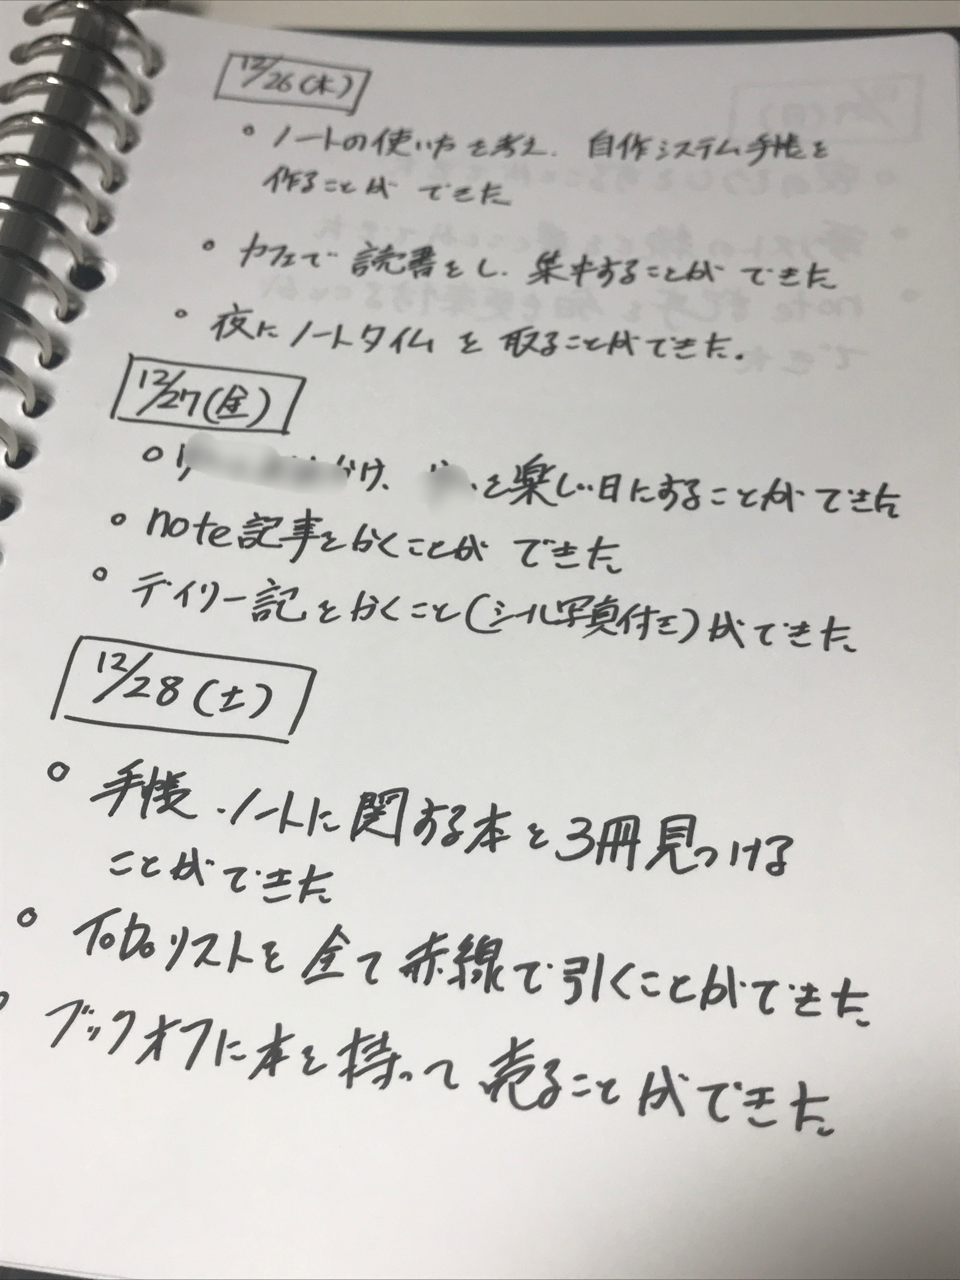 12/26(木)
。ノートの使い方を考え、自作システム手帳を
作ることが できた
。カフェで 読書をし、集中することが できた
。夜にノートタイム を 取ることができた。
12/27(金)
。かけ、を楽しい日にすることができた
。note記事をかくことが できた
。デイリー記をかくこと(シール写真付き)ができた
12/28(土)
。手帳・ノートに関する本を3冊見つける
ことができた
。ToDoリストを全て赤線で引くことができた
。ブックオフに本を持って売ることができた